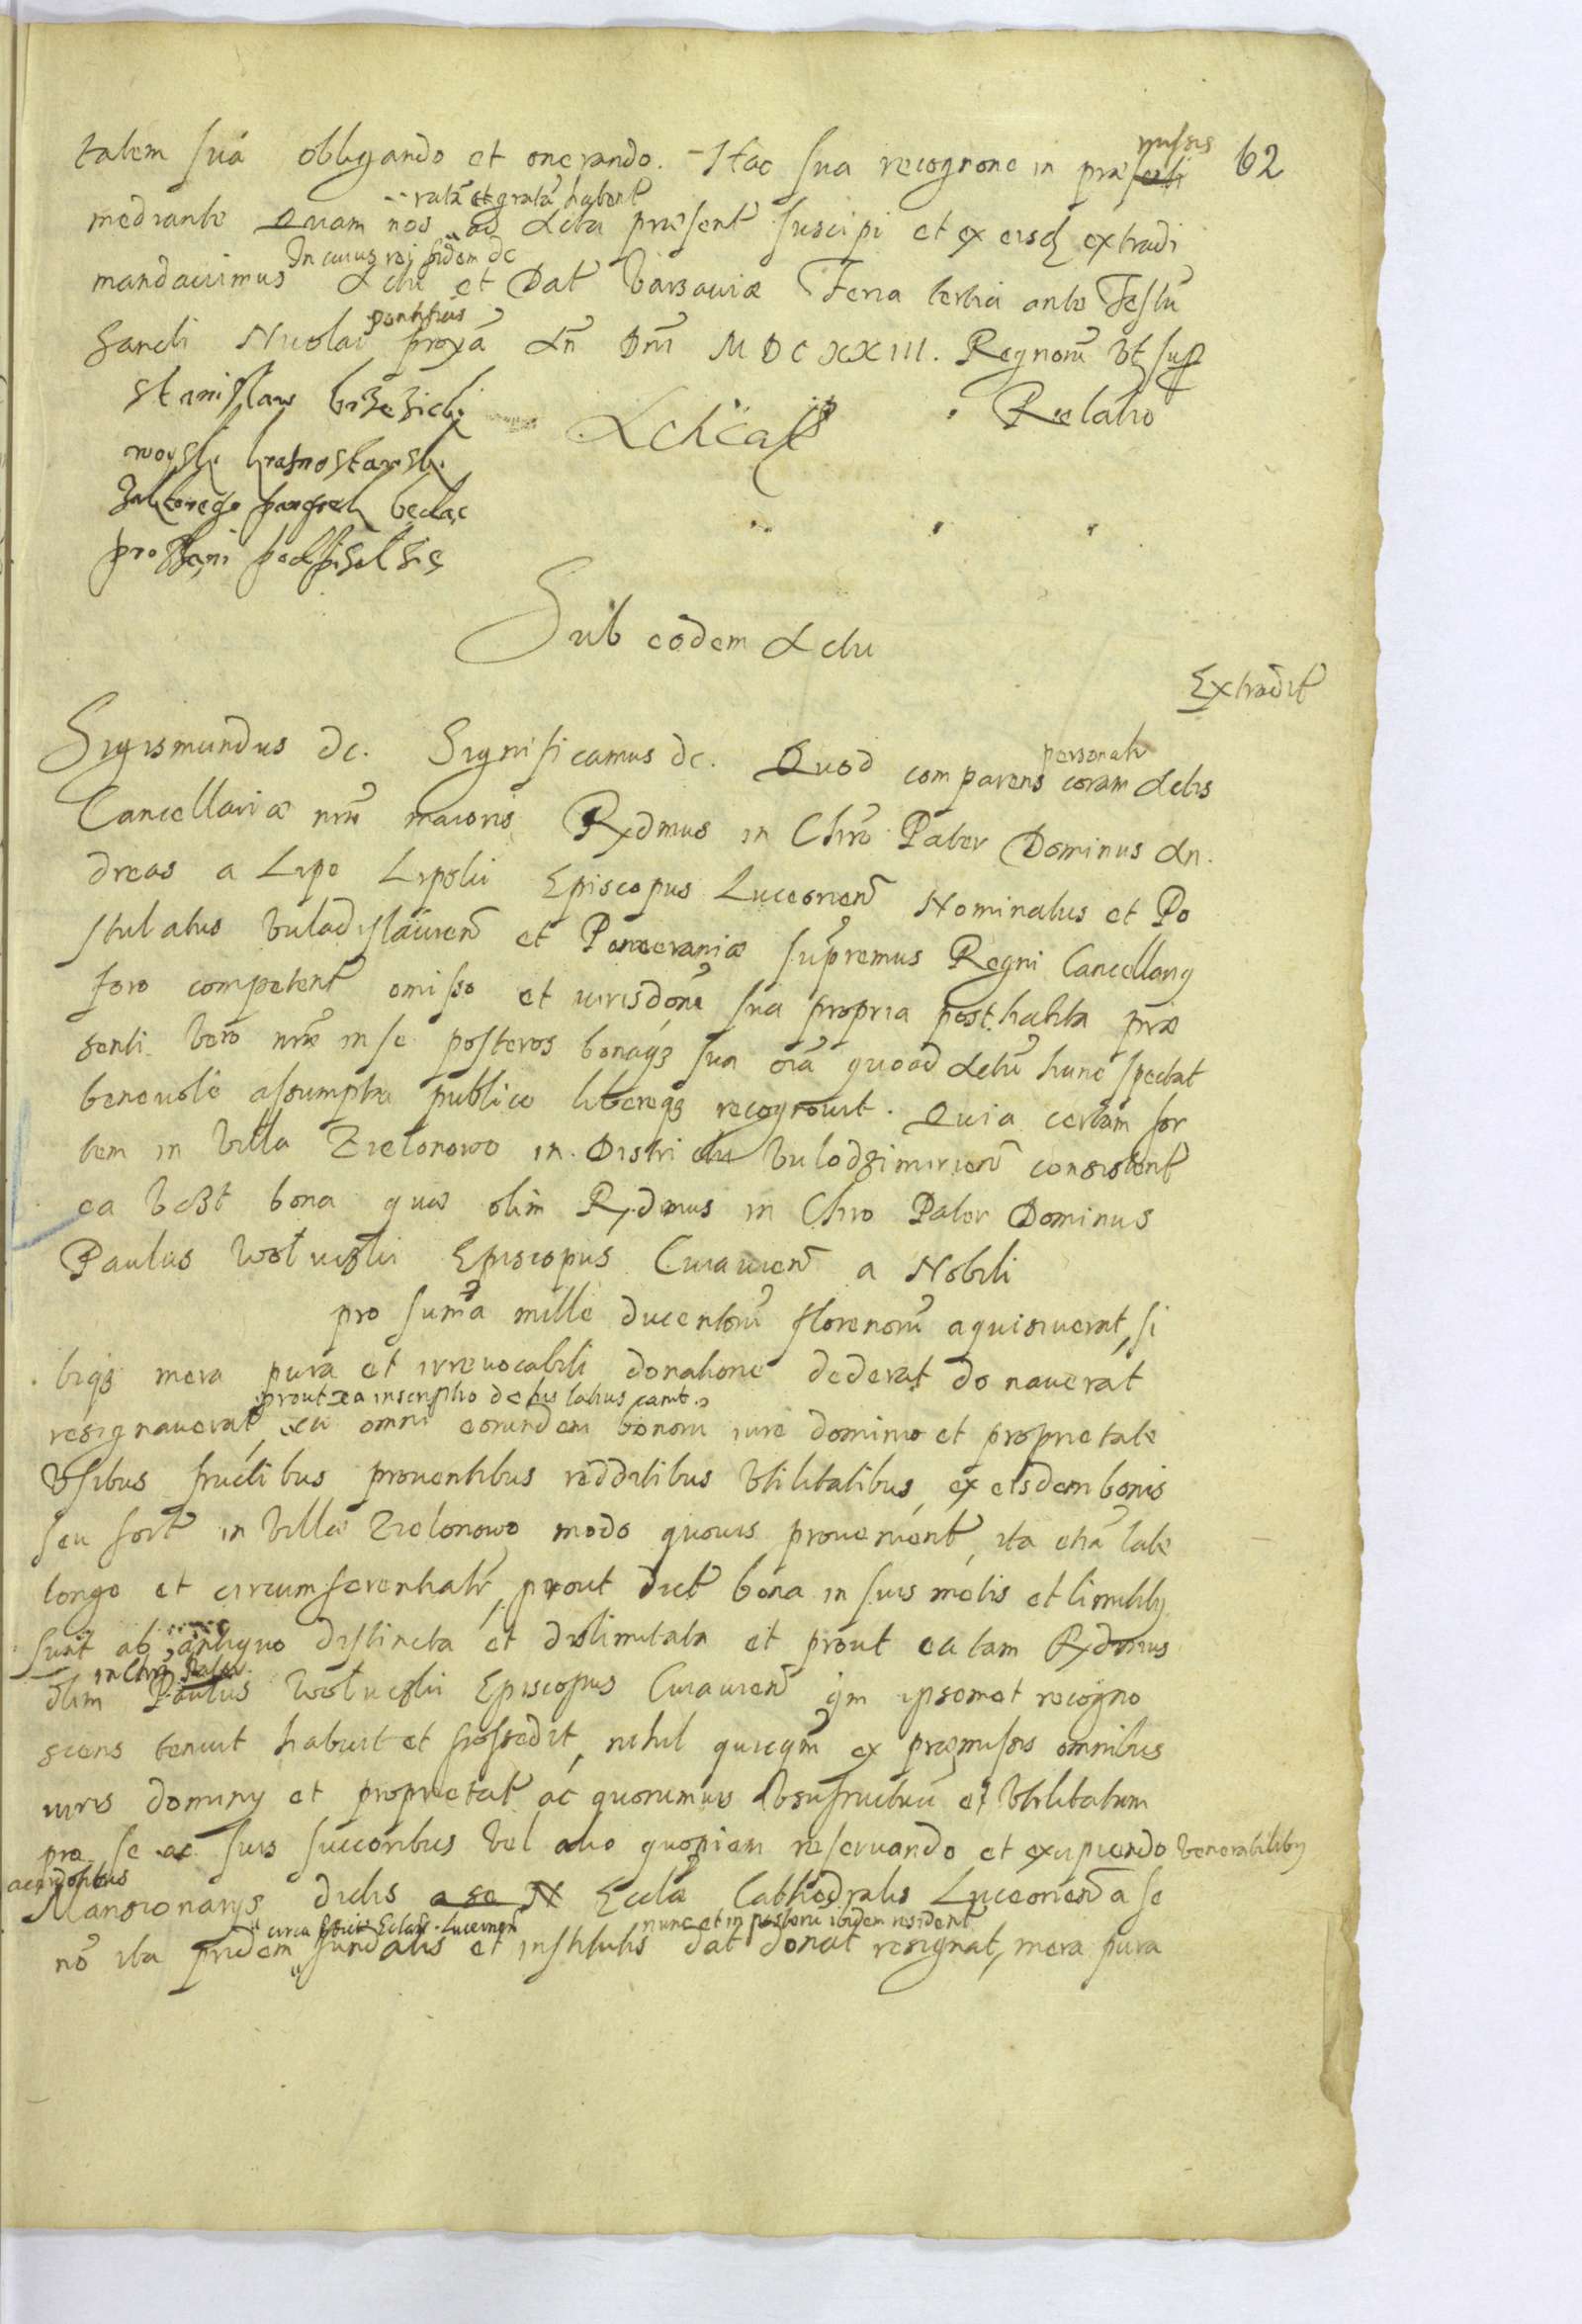 62
talem suã obligando et onerando. Hac sua recognone in præmissis
mediante Quam nos ratã et gratã habent ad Acta præsent suscipi et ex eisd extradi
mandavimus In cuius rei fidem &c Actũ et Dat Varsaviæ Feria tertia ante Festũ
Sancti Nicolai pontificis proxã An Dni MDCXXIII. Regnorũ Vt sup
Stanislaw brzezicki
woyski krasnostawski
Relatio
proszęni podpisal się
Sub eodem Actu
Extradit
Sigismundus &c. Significamus &c. Quod comparens personalr coram Actis
Cancellariæ nræ maioris Rxdmus in Chro Pater Dominus An
dreas a Lipe Lipski Episcopus Luceorien Nominatus et Po
stulatus Vuladislavien et Pomeraniæ supremus Regni Cancellarius
foro competent omisso et iurisdõne sua propria posthabita præ
senti Vero nræ in se posteros bonaqz sua oĩa quoad Actũ hunc spectat
benevole assumpta publice libereqz recognovit. Quia certam sor
tem in Villa Zielonowo in Districtu Vulodzimirien consistent
ea Vczt bona quæ olim Rxdmus in Chro Pater Dominus
Paulus Wolucski Episcopus Cuiavien a Nobili
pro sumã mille ducentorũ florenorũ aquisiuerat, si
biqz mera pura et irrevocabili donatione dederat donauerat
resignauerat, prout ea inscriptio de his latius canit cũ omni eorundem bonorũ iure dominio et proprietate
Vsibus fructibus proventibus redditibus Vtilitatibus, ex eisdem bonis
seu sort in Villa Zielonowo modo quovis provenient, ita etiã late
longe et circumferentialr, prout dict bona in suis metis et limitibus
sunt ab antiquo distincta et dislimitata et prout ea tam Rxdmus
olim in Chro Pater Paulus Wolucski Episcopus Cuiavien qm ipsemet recogno
scens tenuit habuit et possedit, nihil quicqm ex præmissis omnibus
iuris dominy et proprietat ac quorumvis Vsufructuũ et Vtilitatum
pro se ac suis successoribus Vel alio quopiam reservando et excipiendo Venerabilibus
Mansionarys dictis a se N Ecclæ Cathedralis Luceorien a se
nõ ita pridem circa Luceorien fundatis et institutis nunc et in posterũ ibidem resident dat donat resignat, mera pura